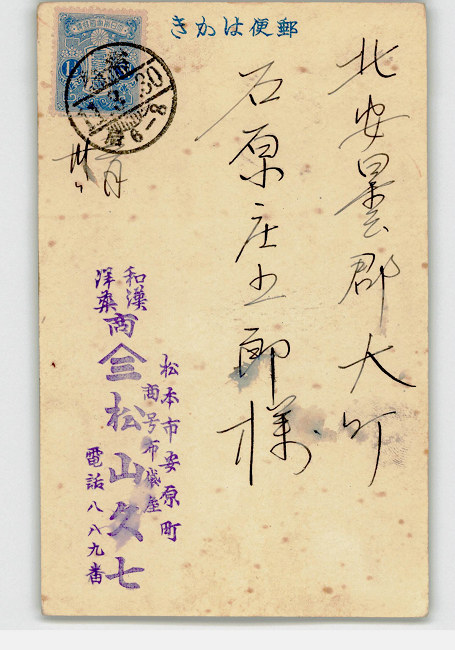 郵便はかき
北安曇郡大町
石原庄五郎様
和漢
洋薬
商
松山久七
松本市安原町
商号布袋座
電話八八九番
30
6-8